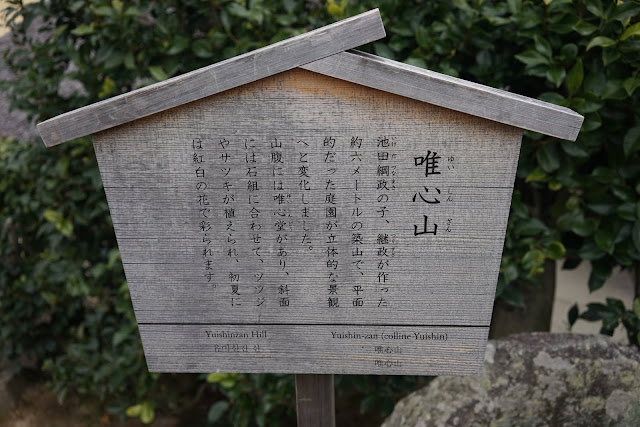 唯心山
ゆいしんざん
池田綱政の子、継政が作った
約六メートルの築山で、平面
的だった庭園が立体的な景観
へと変化しました。
山腹には唯心堂があり、斜面
には石組に合わせて、ツツジ
やサツキが植えられ、初夏に
は紅白の花で彩られます。
Yuishinzan Hill
Yuishin-zan (colline Yuishin)
唯心山
唯心山